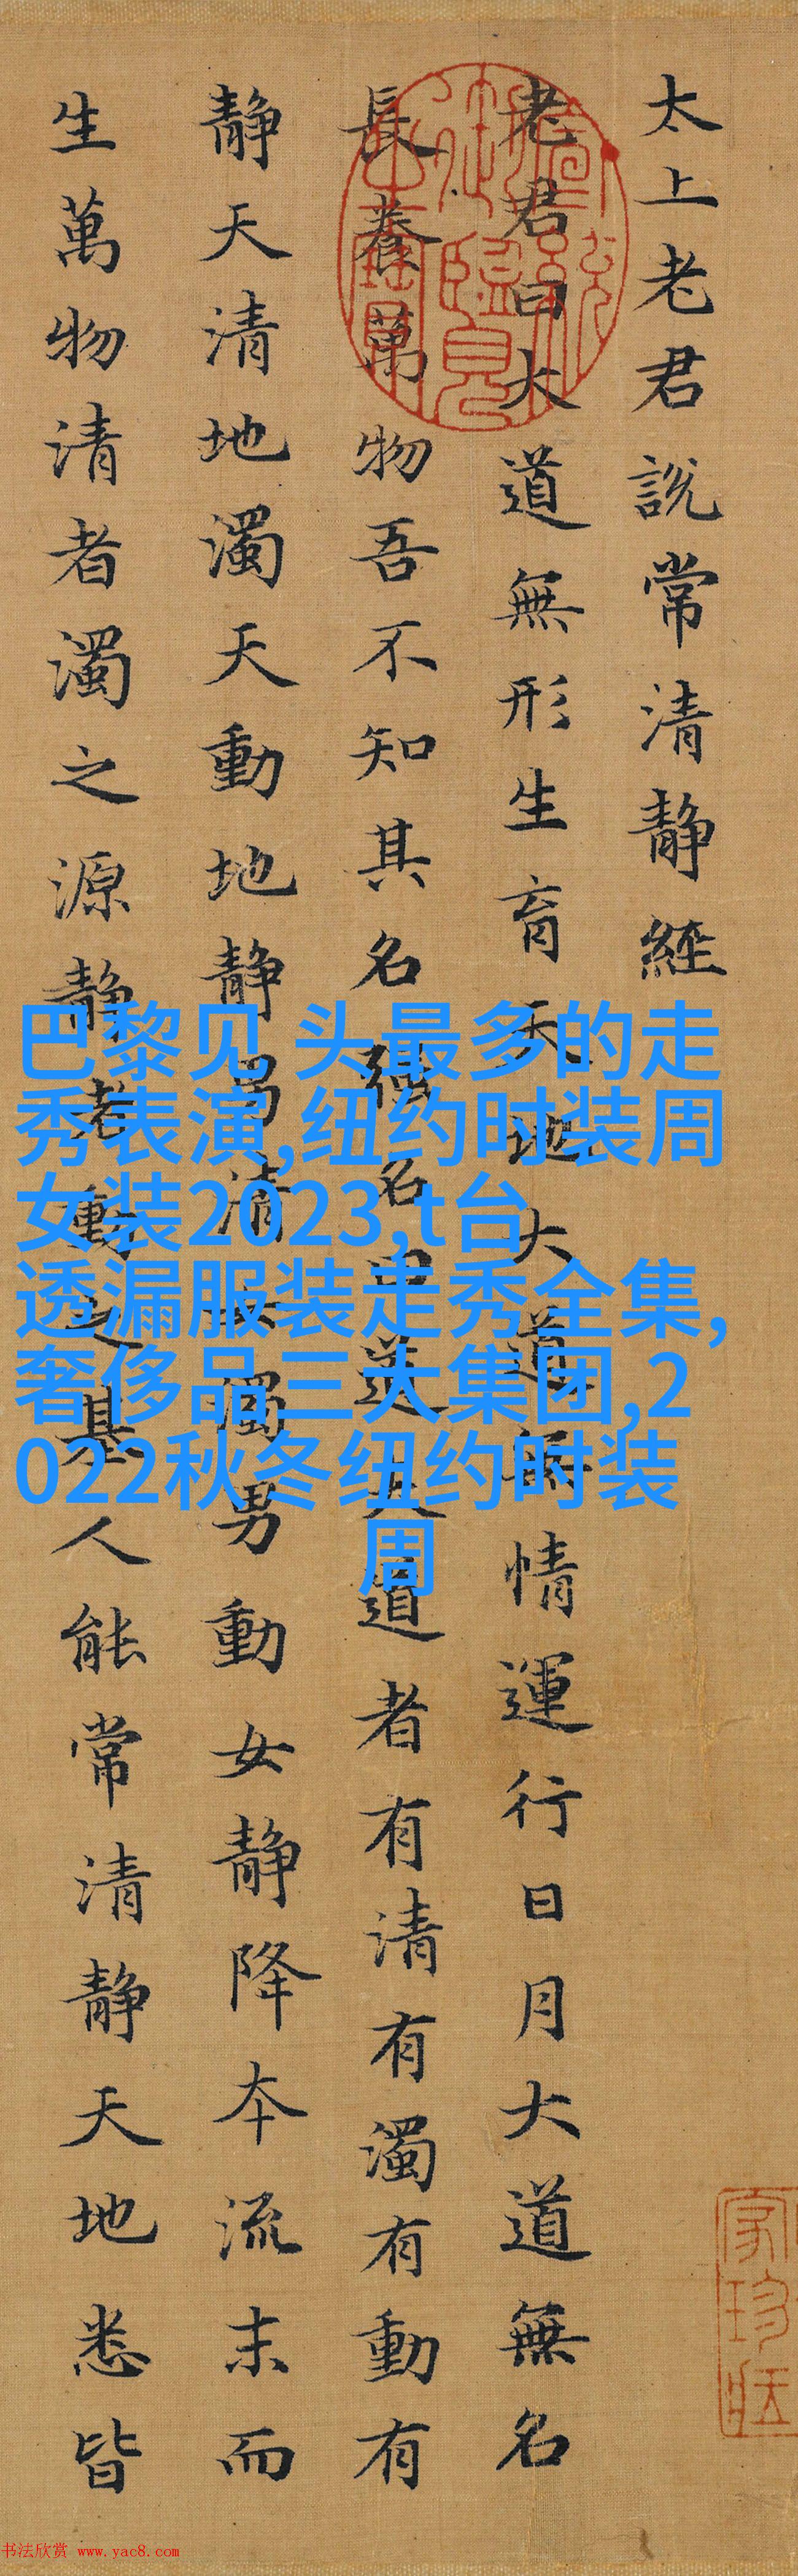 太上老君説常清靜經
老君曰大道無形生育天地大道無情運行日月大道無名
長養萬物吾不知其名強名曰道夫道者有清有濁有動有
靜天清地濁天動地靜男清女濁男動女靜降本流末而
生萬物清者濁之源靜者動之基人能常清靜天地悉皆
宣統御覽之寶
巴黎见 头最多的走
秀表演,纽约时装周
女装2023,t台
透漏服装走秀全集,
奢侈品三大集团,2
022秋冬纽约时装
周
书法欣赏 www.yac8.com